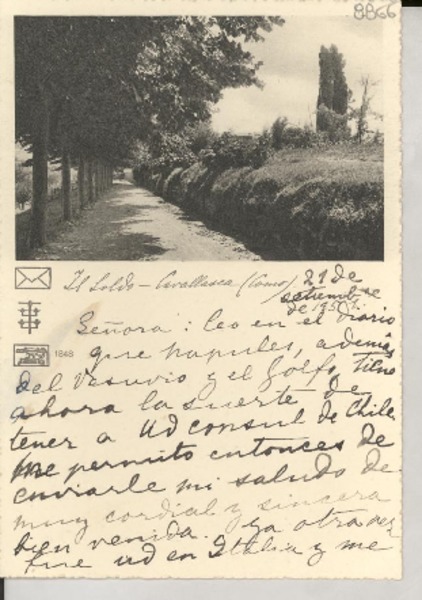 8866
Il Soldo - Cavallasca (Como) 21 de
setiembre
de 195
1848
Señora: leo en el diario
que Napules, además
del Vesuvio y el Golfo, tiene
ahora la suerte de
tener a Ud consul de Chile
me permito entonces de
enviarle mi saludo de
muy cordial y sincera
bien venida. Ya otra vez
fue Ud en Italia y me